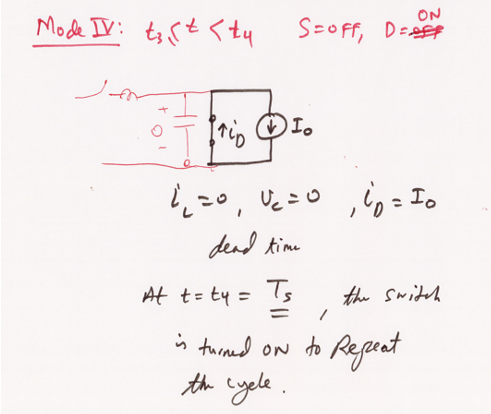 Mode IV: t₃ ≤ t < t₄ S=OFF, D=ON
+
0
-
↑i_D
↓ I₀
i_L=0, v_c=0, i_D=I₀
dead time
At t=t₄= Ts, the switch
is turned ON to Repeat
the cycle.